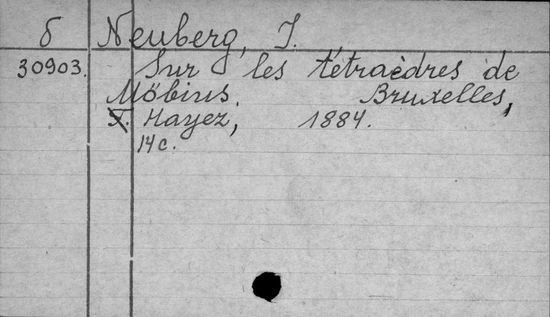 б Neuberg, J.
30903. Sur les tétraèdres de
Möbius. Bruxelles,
F. Hayez, 1884.
14 c.